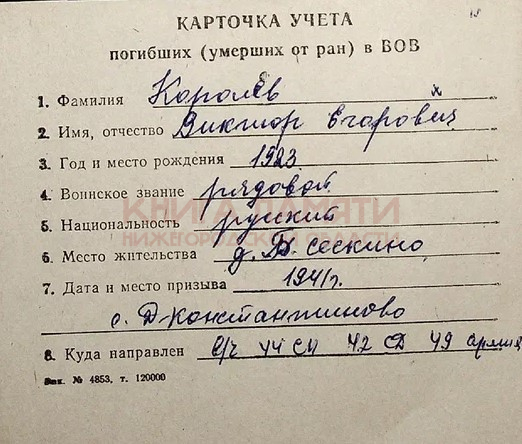 КАРТОЧКА УЧЕТА
погибших (умерших от ран) в ВОВ
1. Фамилия Королёв
2. Имя, отчество Виктор Егорович
3. Год и место рождения 1923
4. Воинское звание рядовой
КНИГА ПАМЯТИ
5. Национальность русский
НИЖЕГОРОДСКОЙ ОБЛАСТИ
6. Место жительства д. Б. сескино
7. Дата и место призыва 1941г.
с. Д-константиново
8. Куда направлен 44 СП 42 СД 49 армия
Зак. № 4853, т. 120000